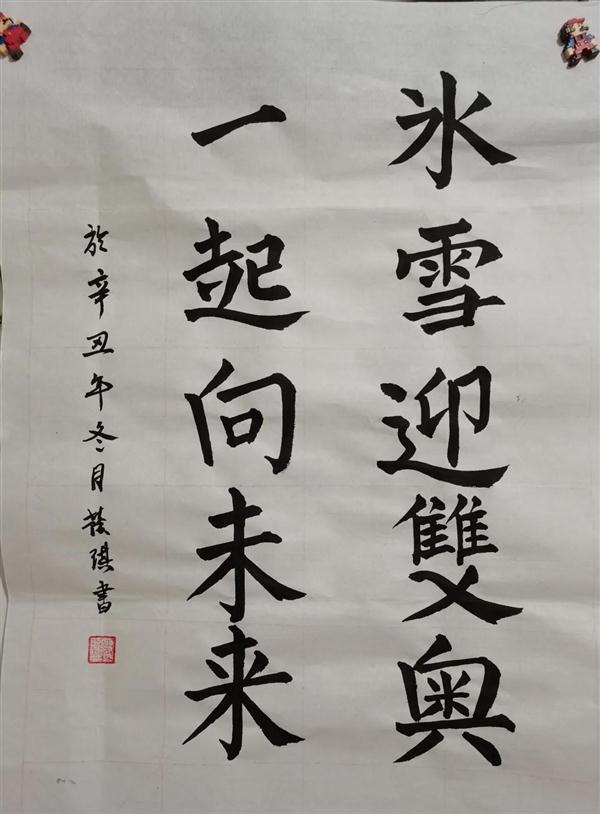 氷雪迎雙奥
一起向未来
於辛丑年冬月 琪書